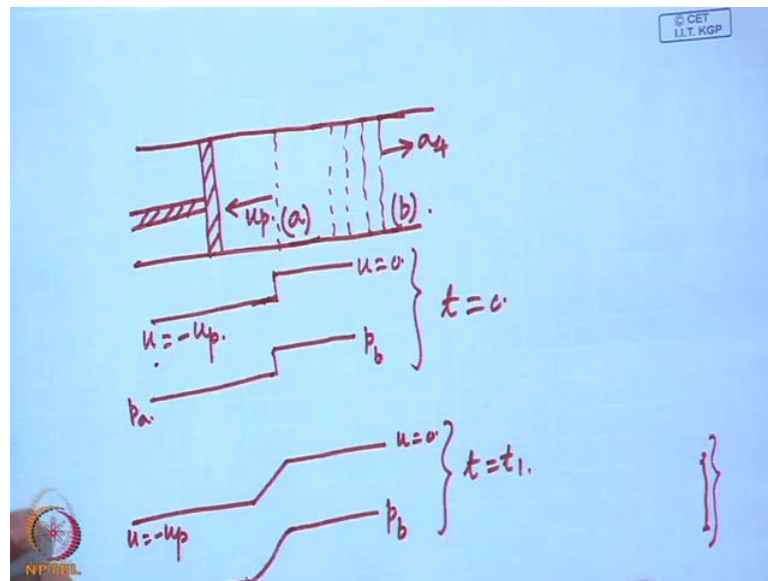 © CET
I.I.T. KGP
a4
up. (a)
(b).
u=0.
u=-up.
t=0.
pb
pa.
u=0.
t=t1.
u=-up
pb
NPTEL